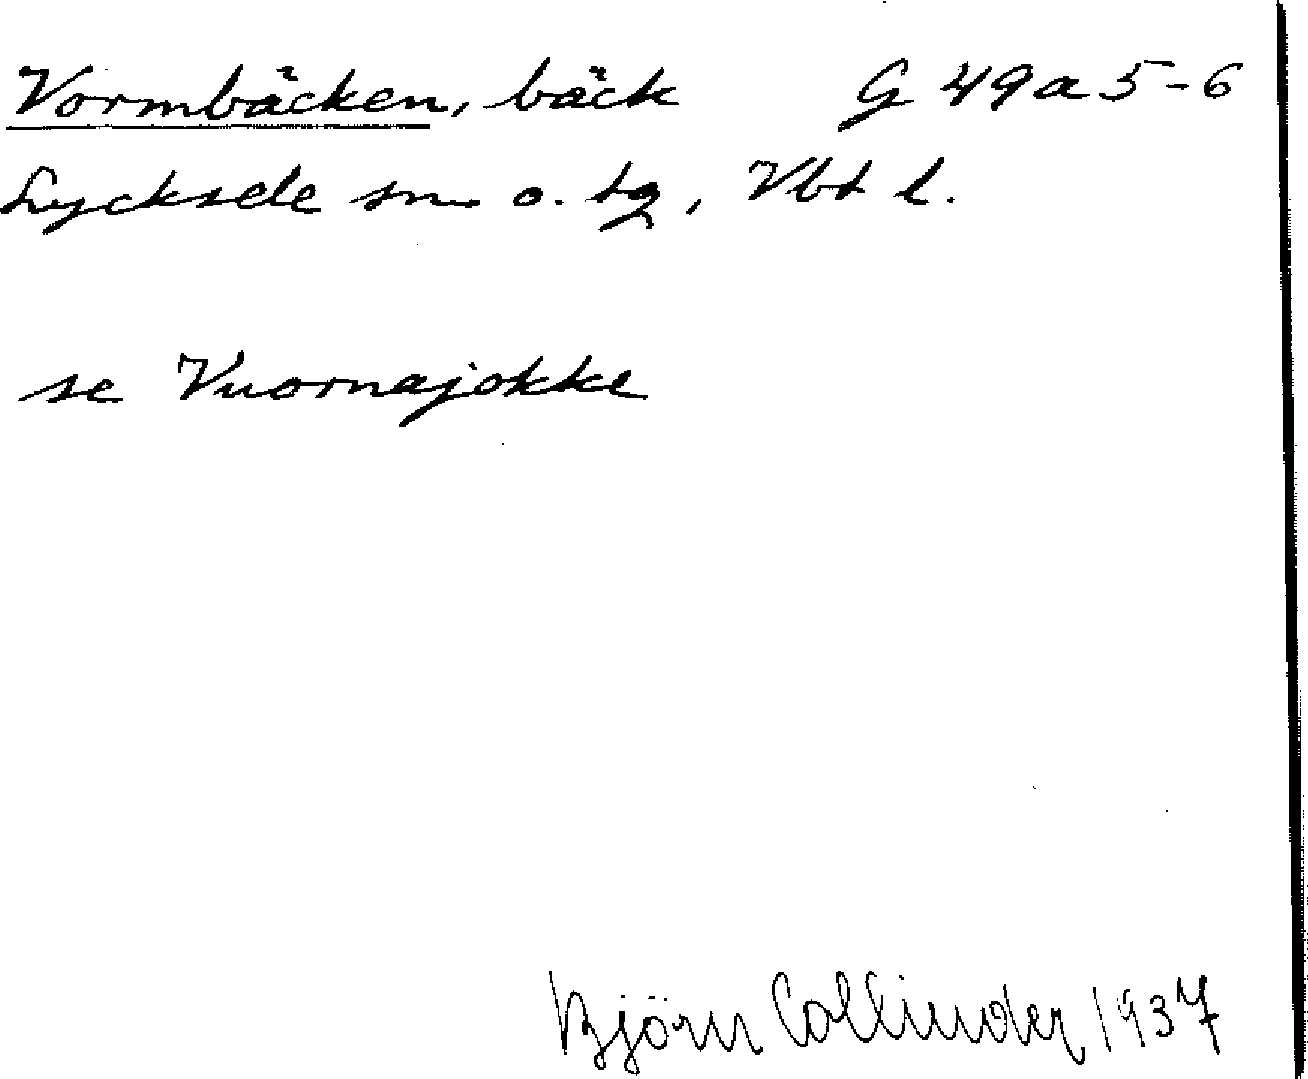 Vormbäcken, bäck G 49a5-6
Lycksele sn o. tg, Vbt l.
se Vuornajokke
Björn Collinder 1937